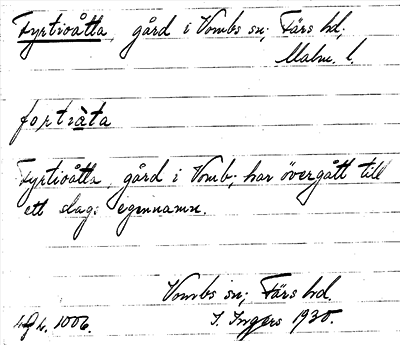 Fyrtioåtta, gård i Vombs sn; Färs hd;
Malm. l.
fortiåta
Fyrtioåtta, gård i Vomb; har övergått till
ett slags egennamn.
Vombs sn; Färs hd.
I. Ingers 1930.